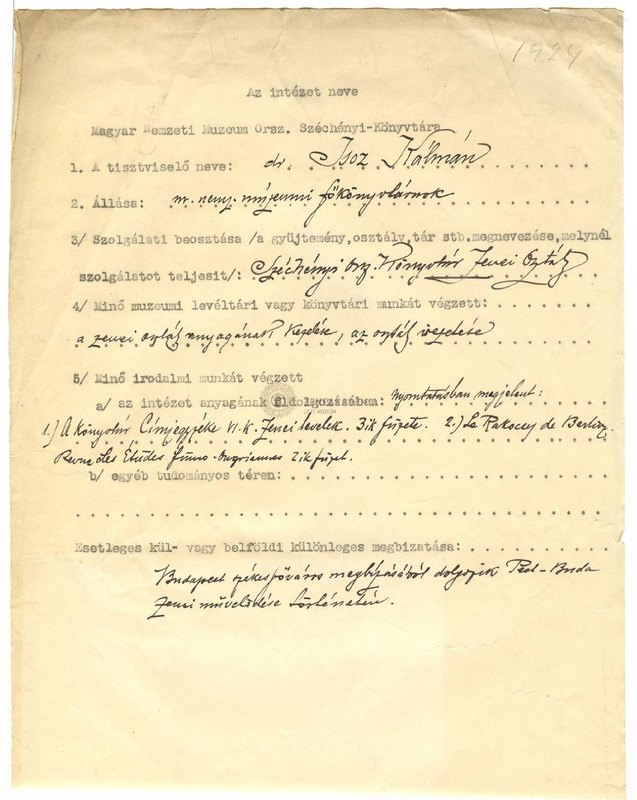 1924
Az intézet neve
Magyar Nemzeti Muzeum Orsz. Széchényi-Könyvtára
1. A tisztviselő neve: dr. Isoz Kálmán
2. Állása: m. nemz. múzeumi főkönyvtárnok
3/ Szolgálati beosztása /a gyüjtemény,osztály,tár stb.megnevezése,melynél
szolgálatot teljesit/: Széchényi Orsz. Könyvtár Zenei Osztály
4/ Minő muzeumi levéltári vagy könyvtári munkát végzett:
a zenei osztály anyagának kezelése, az osztály vezetése
5/ Minő irodalmi munkát végzett
a/ az intézet anyagának feldolgozásában: nyomtatásban megjelent:
1.) A könyvtár Címjegyzéke VI. k. Zenei levelek. 3ik füzete. 2.) La Rakoczy de Berlioz.
Revue des Etudes finno-ougriennes 2ik füzet.
b/ egyéb tudományos téren:
Esetleges kül- vagy belföldi különleges megbizatása:
Budapest székesfőváros megbízásából dolgozik Pest-Buda
zenei művelődése történetén.